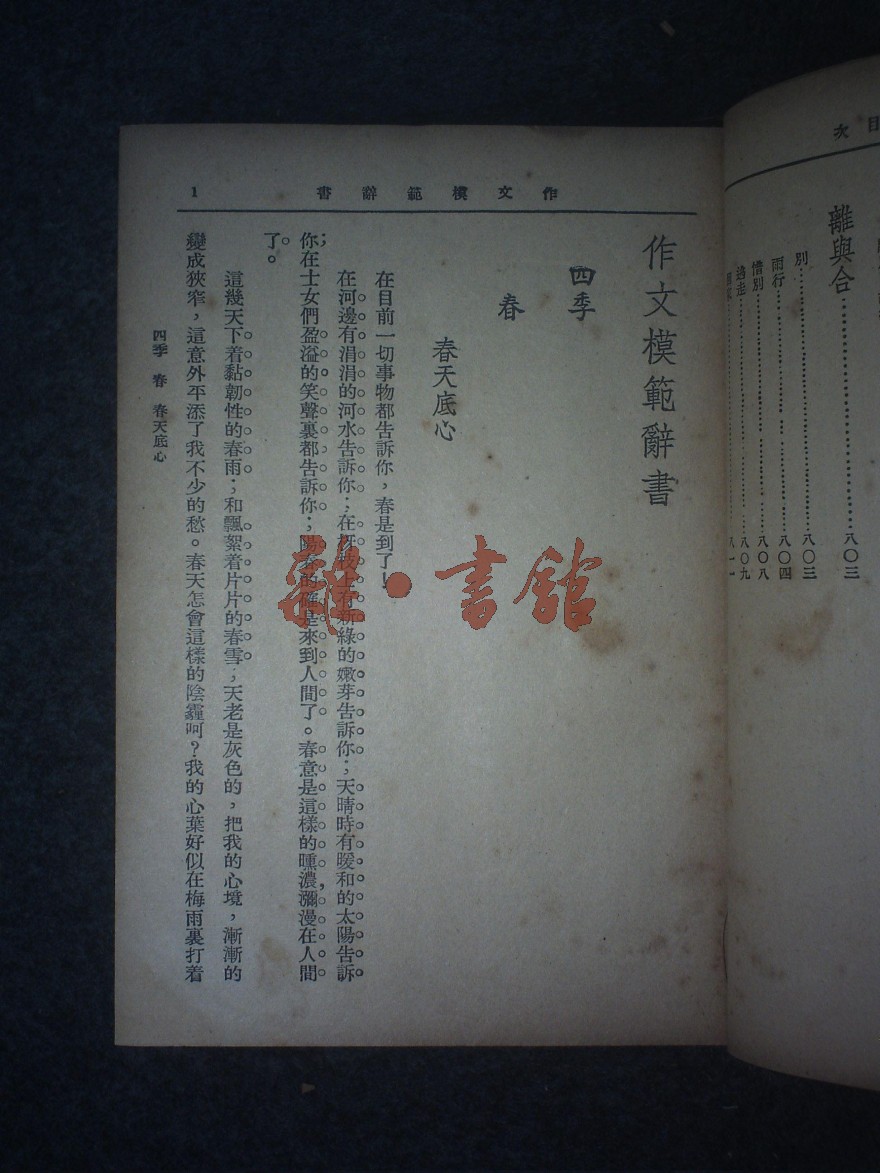 目次
離與合……………………八〇三
別……………………八〇三
雨行……………………八〇四
惜別……………………八〇八
逃走……………………八〇九
八一一
作文模範辭書 1
作文模範辭書
四季
春
春天底心
在目前一切事物都告訴你，春是到了！
在河邊有涓涓的河水告訴你；在枒枝上有新綠的嫩芽告訴你；天晴時有暖和的太陽告訴
你在士女們盈溢的笑聲裏都告訴你；陽春的確是來到人間了。春意是這樣的醺濃，瀰漫在人間
了。
這幾天下着黏韌性的春雨；和飄絮着片片的春雪；天老是灰色的，把我的心境，漸漸的
變成狹窄，這意外平添了我不少的愁。春天怎會這樣的陰霾呵？我的心葉好似在梅雨裏打着
四季 春 春天底心
雜·書館